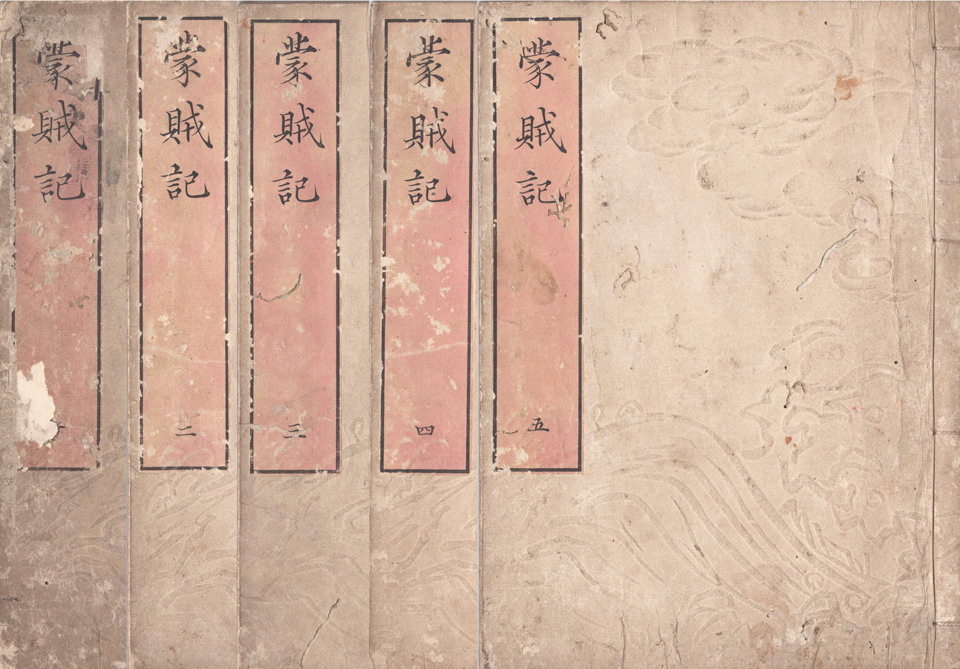 蒙賊記
蒙賊記 二
蒙賊記 三
蒙賊記 四
蒙賊記 五